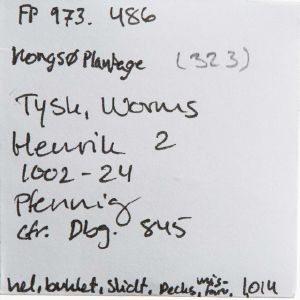 FP 973. 486
Kongsø Plantage (323)
Tysk, Worms
Henrik 2
1002-24
Pfennig
cfr. Dbg. 845
hel, bukket, slidt, pecks, mis-
farv. 1,01 g